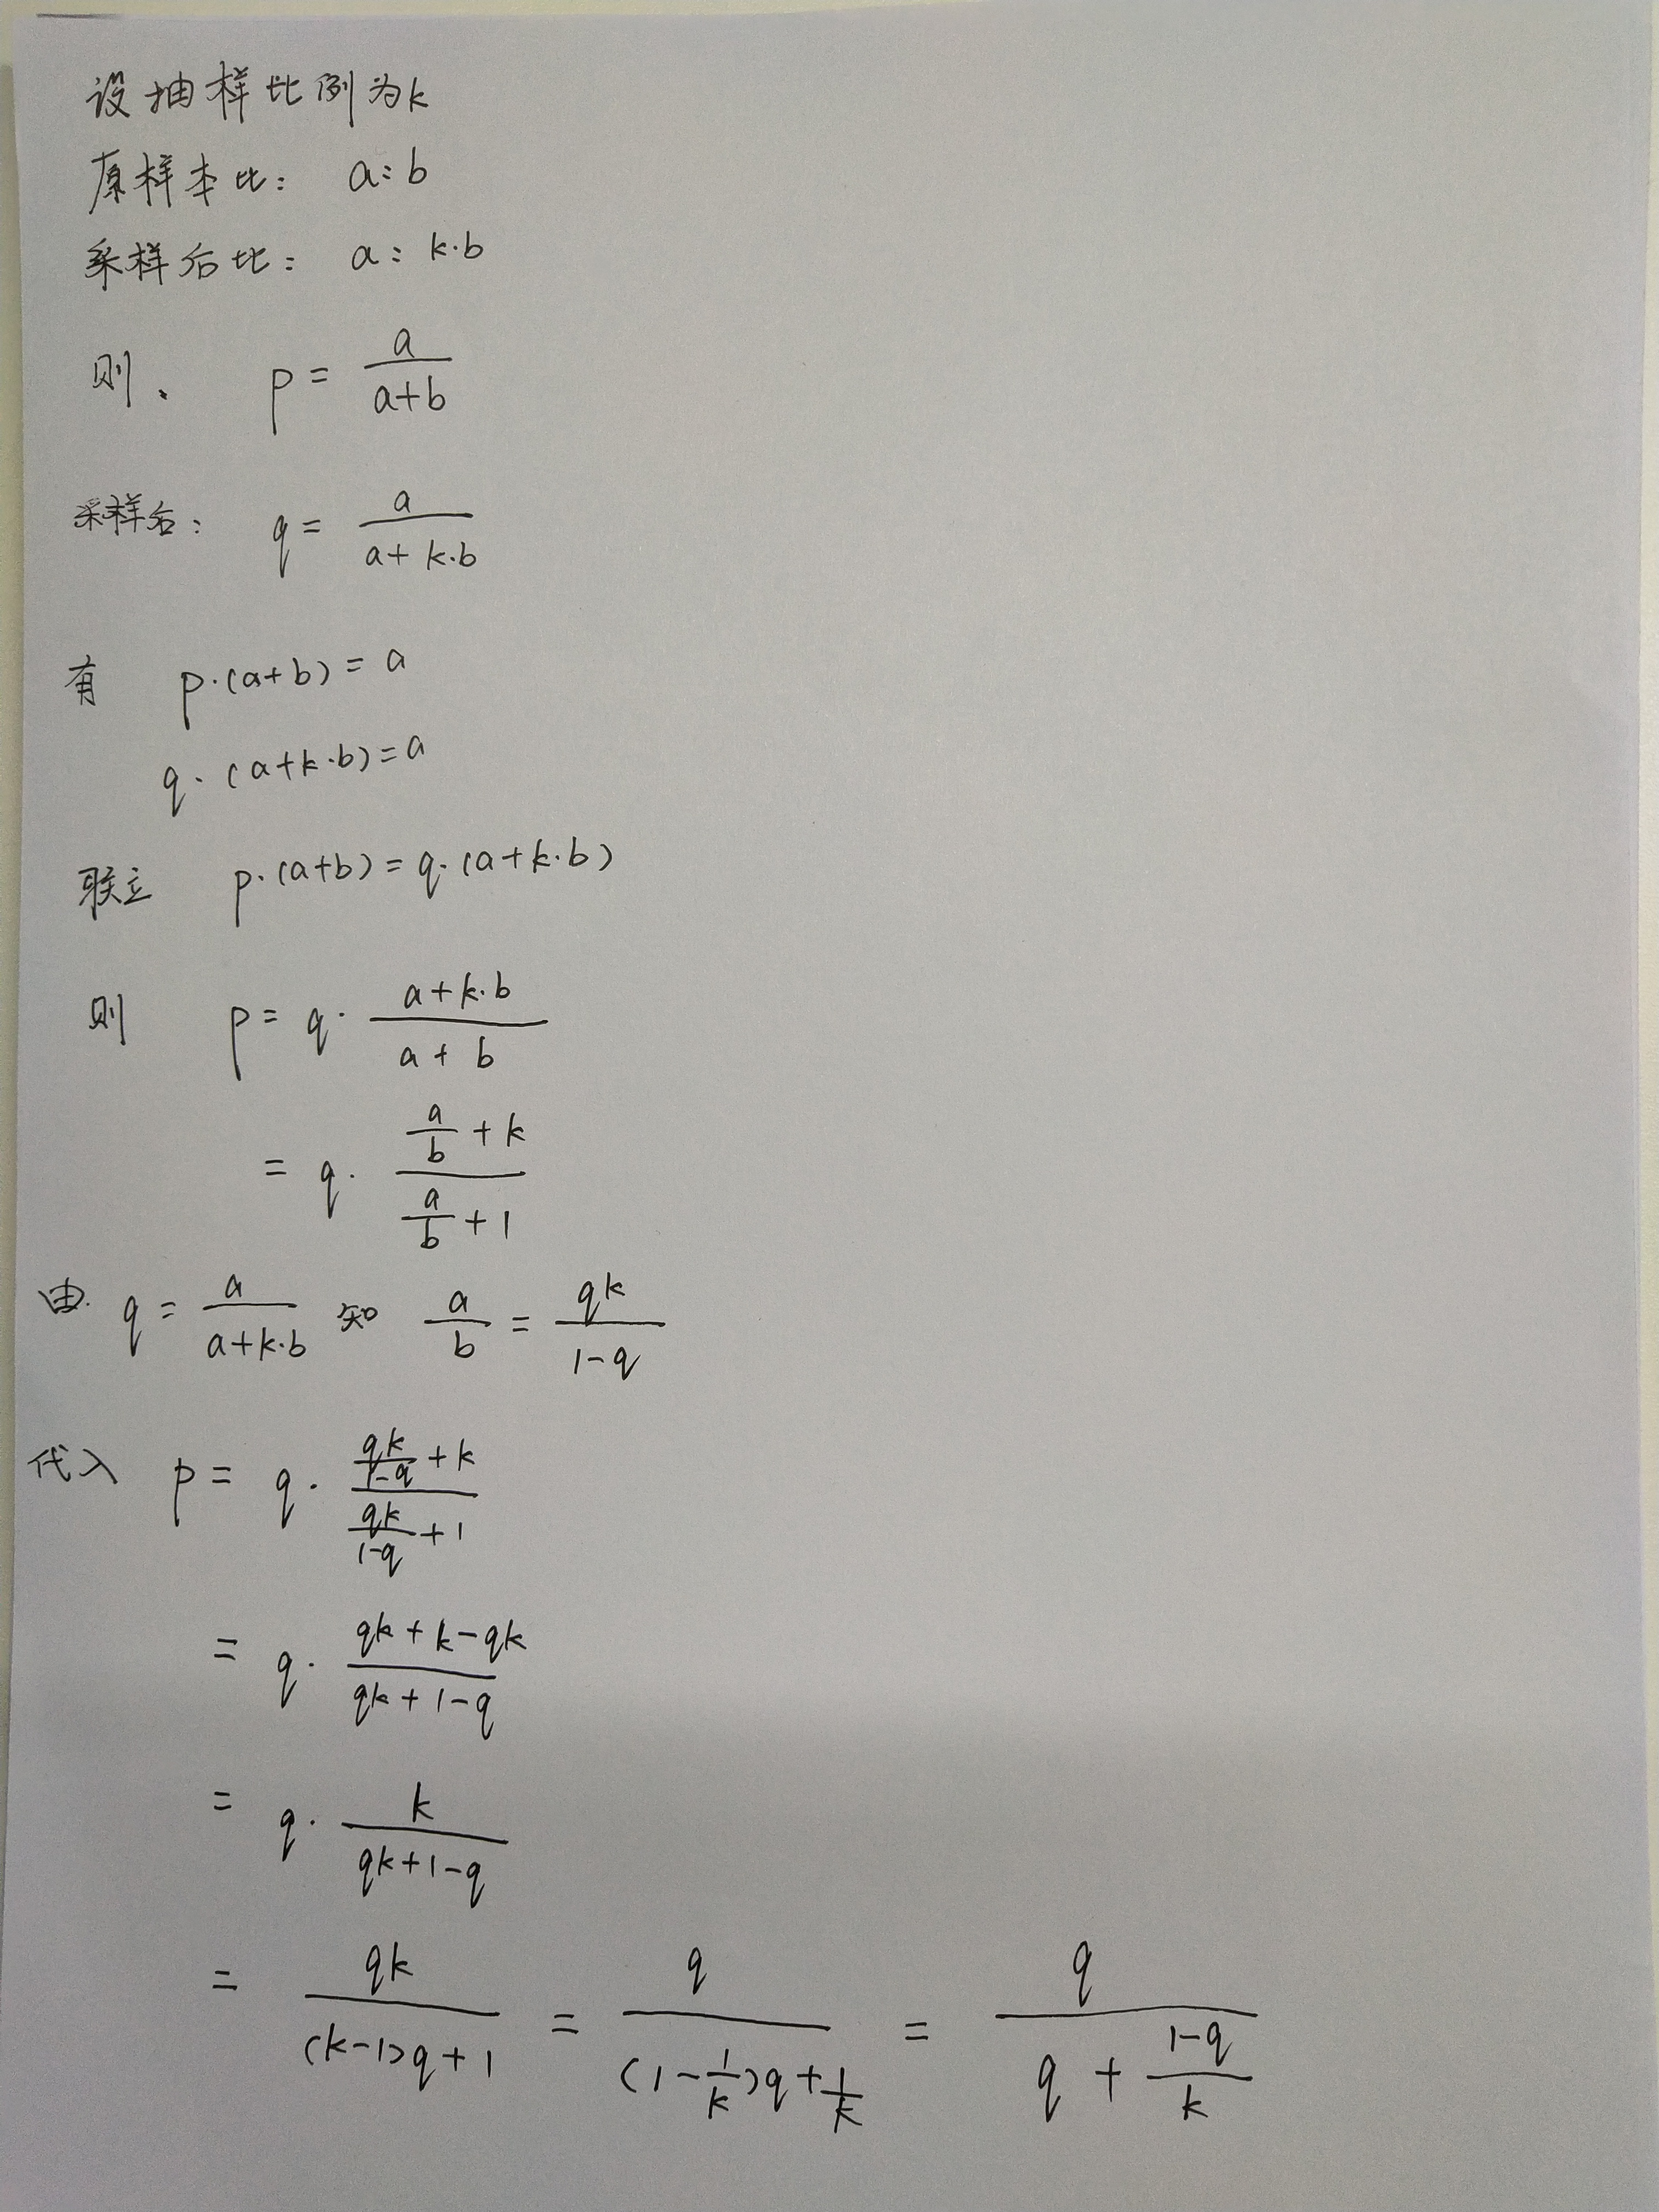 设抽样比例为k
原样本比： a:b
采样后比： a: k·b
则、 p = a/(a+b)
采样后： q = a/(a+k·b)
有 p·(a+b) = a
q·(a+k·b) = a
联立 p·(a+b) = q·(a+k·b)
则 p = q· (a+k·b)/(a+b)
= q· (a/b + k)/(a/b + 1)
由. q = a/(a+k·b) 知 a/b = qk/(1-q)
代入 p = q· (qk/(1-q) + k)/(qk/(1-q) + 1)
= q· (qk+k-qk)/(qk+1-q)
= q· k/(qk+1-q)
= qk/((k-1)q+1) = q/((1-1/k)q+1/k) = q/(q + (1-q)/k)